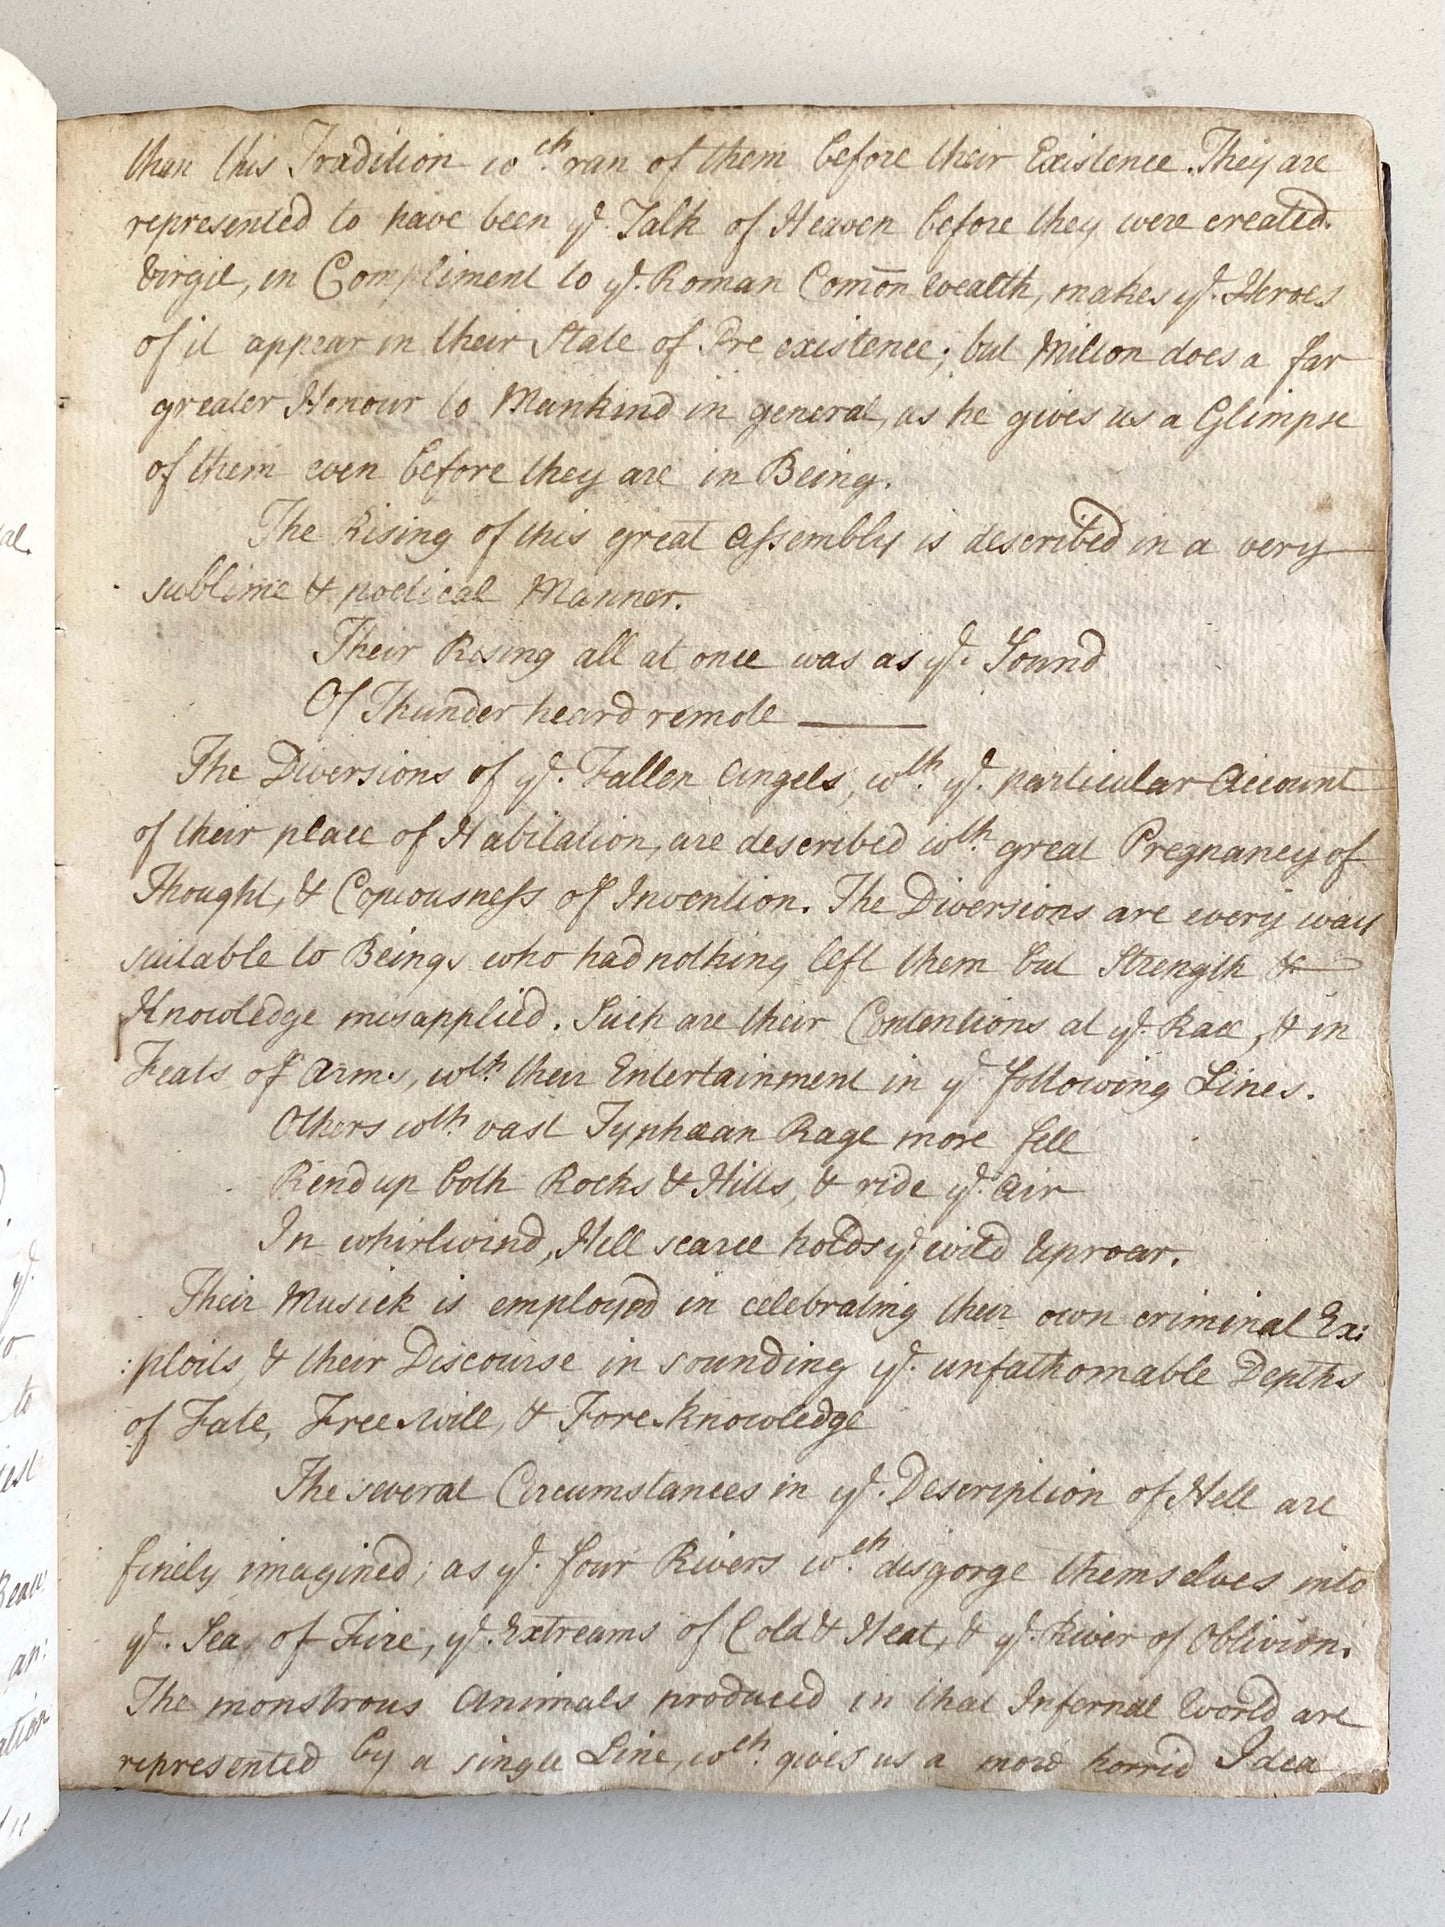 than this Tradition wch. ran of them before their Existence. They are
represented to have been ye. Talk of Heaven before they were created.
Virgil, in Compliment to ye. Roman Com̅on wealth, makes ye. Heroes
of it appear in their State of Pre existence; but Milton does a far
greater Honour to Mankind in general, as he gives us a Glimpse
of them even before they are in Being.
The Rising of this great Assembly is described in a very
sublime & poetical Manner.
Their Rising all at once was as ye. Sound
Of Thunder heard remote ———
The Diversions of ye. Fallen Angels, wth. ye. particular Account
of their place of Habitation, are described wth. great Pregnancy of
Thought, & Copiousness of Invention. The Diversions are every way
suitable to Beings who had nothing left them but Strength &
Knowledge misapplied. Such are their Contentions at ye. Race, & in
Feats of Arms, wth. their Entertainment in ye. following Lines.
Others wth. vast Typhæan Rage more fell
Rend up both Rocks & Hills, & ride ye. Air
In whirlwind, Hell scarce holds ye. wild Uproar.
Their Musick is employed in celebrating their own criminal Ex:
:ploits, & their Discourse in sounding ye. unfathomable Depths
of Fate, Free-will, & Fore-knowledge
The several Circumstances in ye. Description of Hell are
finely imagined; as ye. four Rivers wch. disgorge themselves into
ye. Sea of Fire, ye. Extreams of Cold & Heat, & ye. River of Oblivion.
The monstrous Animals produced in that Infernal World are
represented by a single Line, wch. gives us a more horrid Idea